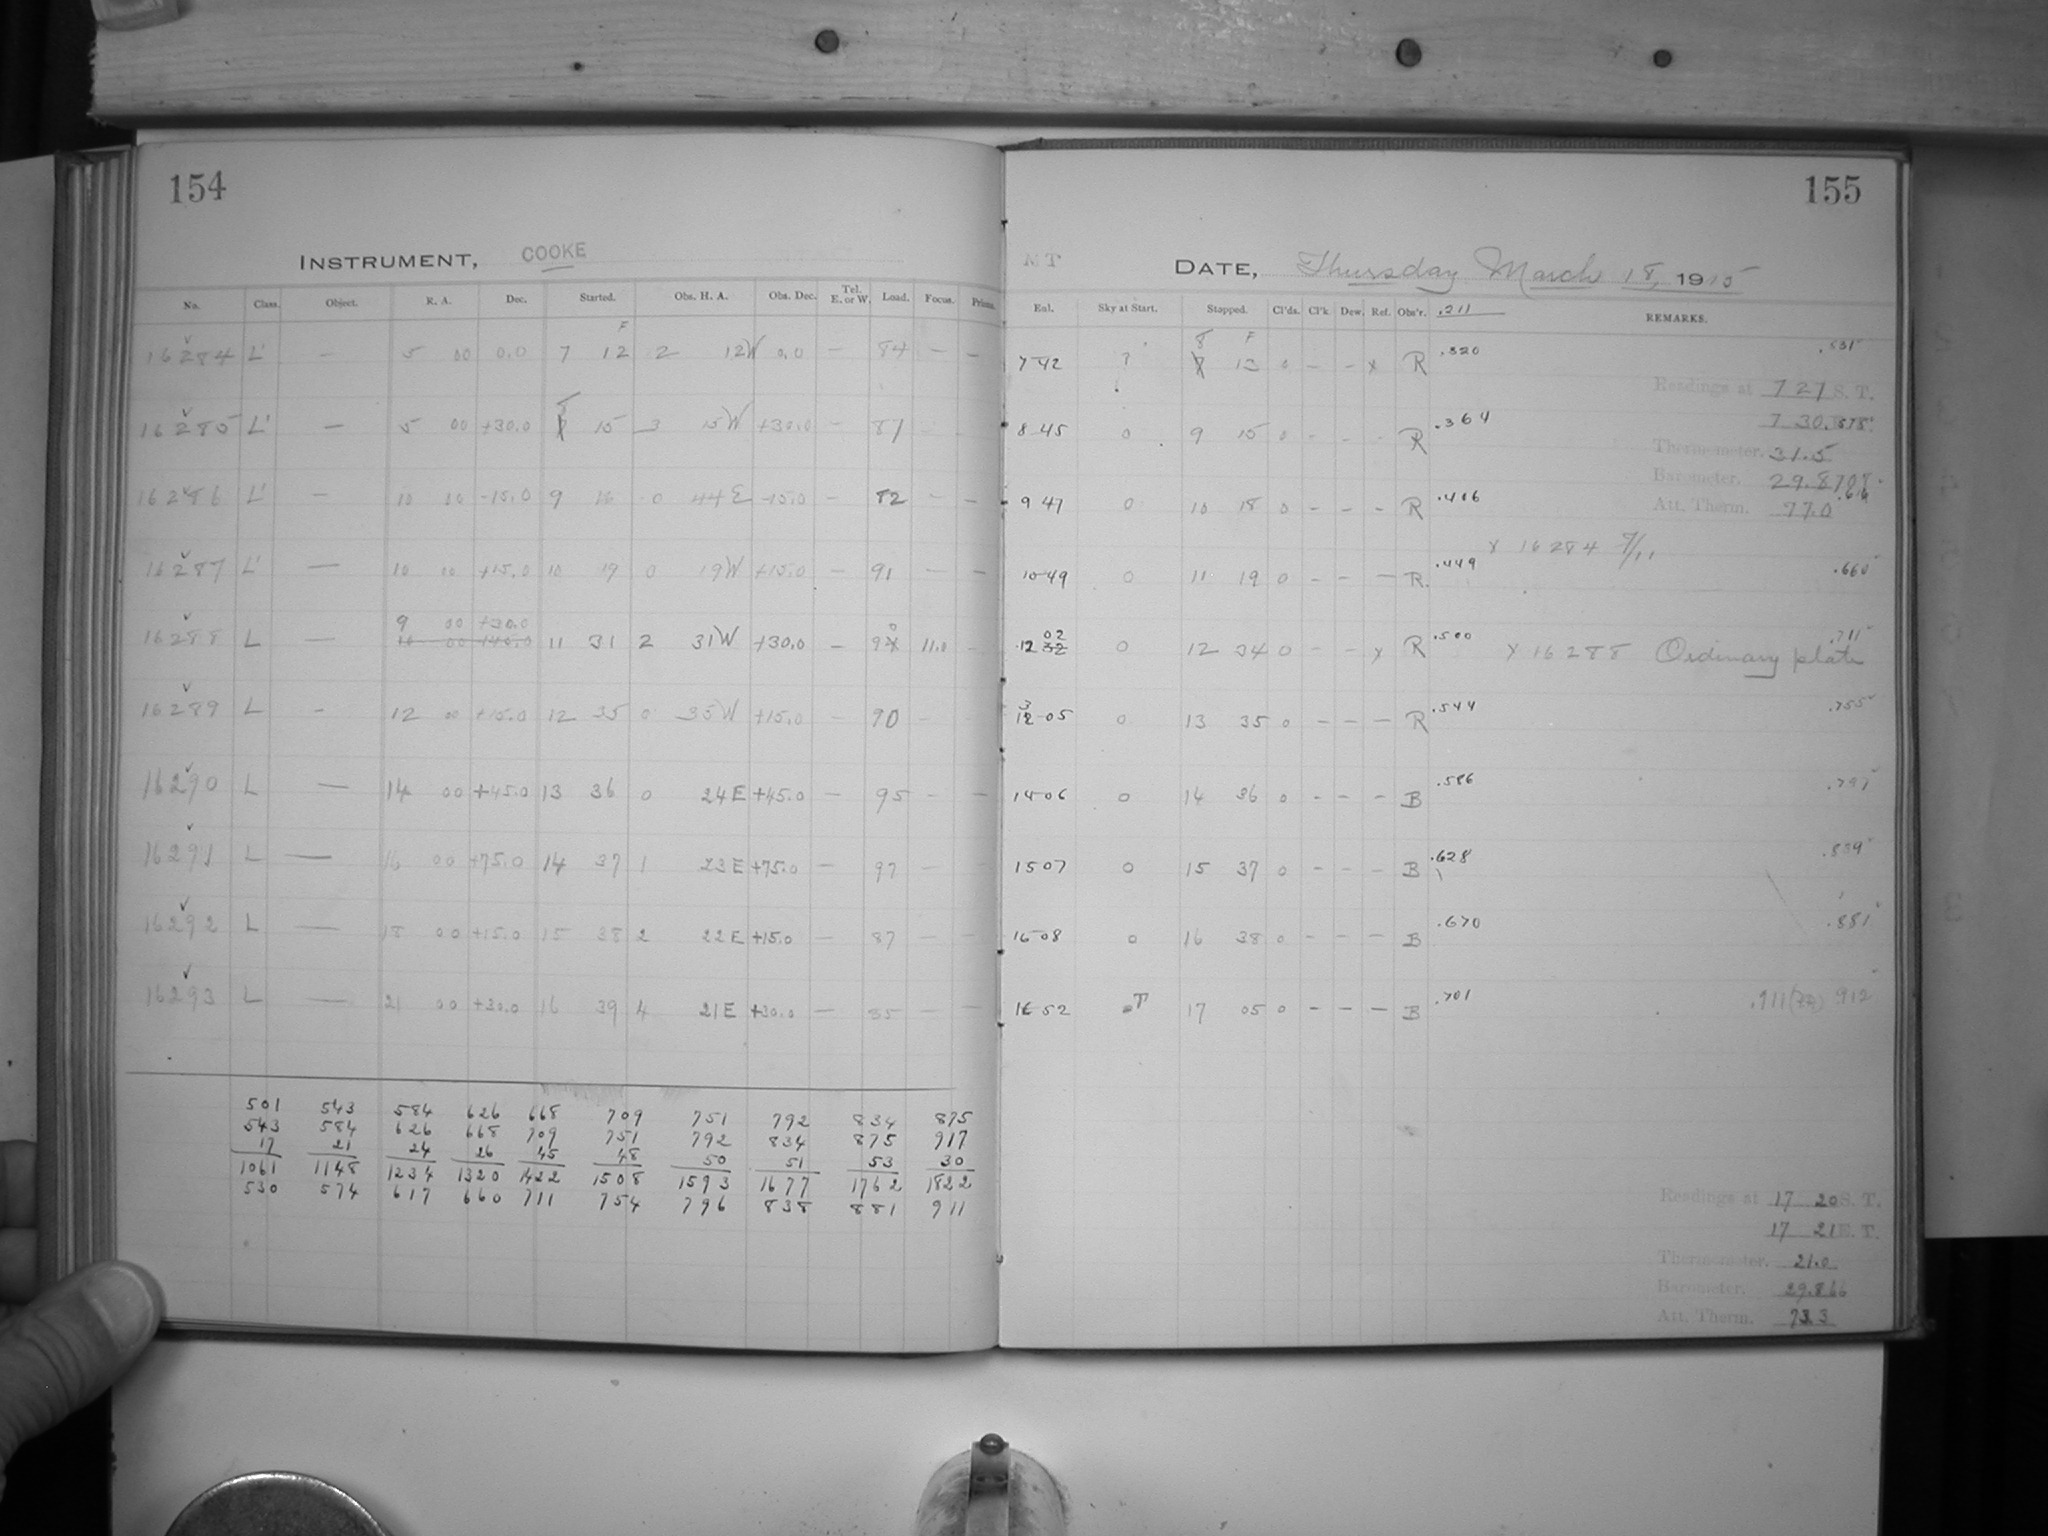 154
INSTRUMENT, COOKE
No. Class. Object. R. A. Dec. Started. Obs. H. A. Obs. Dec. Tel. E. or W. Load. Focus. Prisms.
F
16284 L' — 5 00 0.0 7 12 2 12W 0.0 — 84 — —
8
16285 L' — 5 00 +30.0 15 3 15W +30.0 — 87 — —
16286 L' — 10 00 -15.0 9 16 0 44E -15.0 — 82 — —
16287 L' — 10 00 +15.0 10 19 0 19W +15.0 — 91 — —
9 00 +30.0
16288 L — 10 00 +40.0 11 31 2 31W +30.0 — 90 11.0 —
16289 L - 12 00 +15.0 12 35 0 35W +15.0 — 90 — —
16290 L — 14 00 +45.0 13 36 0 24E +45.0 — 95 — —
16291 L — 16 00 +75.0 14 37 1 23E +75.0 — 97 — —
16292 L — 18 00 +15.0 15 38 2 22E +15.0 — 87 — —
16293 L — 21 00 +30.0 16 39 4 21E +30.0 — 85 — —
501 543 584 626 668 709 751 792 834 875
543 584 626 668 709 751 792 834 875 917
17 21 24 26 45 48 50 51 53 30
1061 1148 1234 1320 1422 1508 1593 1677 1762 1822
530 574 617 660 711 754 796 838 881 911
155
MT DATE, Thursday March 18, 1915
Exl. Sky at Start. Stopped. Cl'ds. Cl'k. Dew. Ref. Obs'r. .211 REMARKS.
8 F
7 42 ? 13 0 - - x R .320 .531
Readings at 7 27 S. T.
7 30
8 45 0 9 15 0 - - - R .364 .575
Thermometer. 31.5
Barometer. 29.870
9 47 0 10 18 0 - - - R .406 .616
Att. Therm. 77.0
x 16284 F/11
10 49 0 11 19 0 - - — R. .449 .660
02
12 32 0 12 34 0 - - x R .500 x 16288 Ordinary plate .711
3
12 05 0 13 35 0 - - - R .544 .755
14 06 0 14 36 0 - - - B .586 .797
15 07 0 15 37 0 - - - B .628 .839
16 08 0 16 38 0 - - - B .670 .881
16 52 T 17 05 0 - - - B .701 .911 912
Readings at 17 20 S. T.
17 21 E. T.
Thermometer. 21.0
Barometer. 29.866
Att. Therm. 73.3